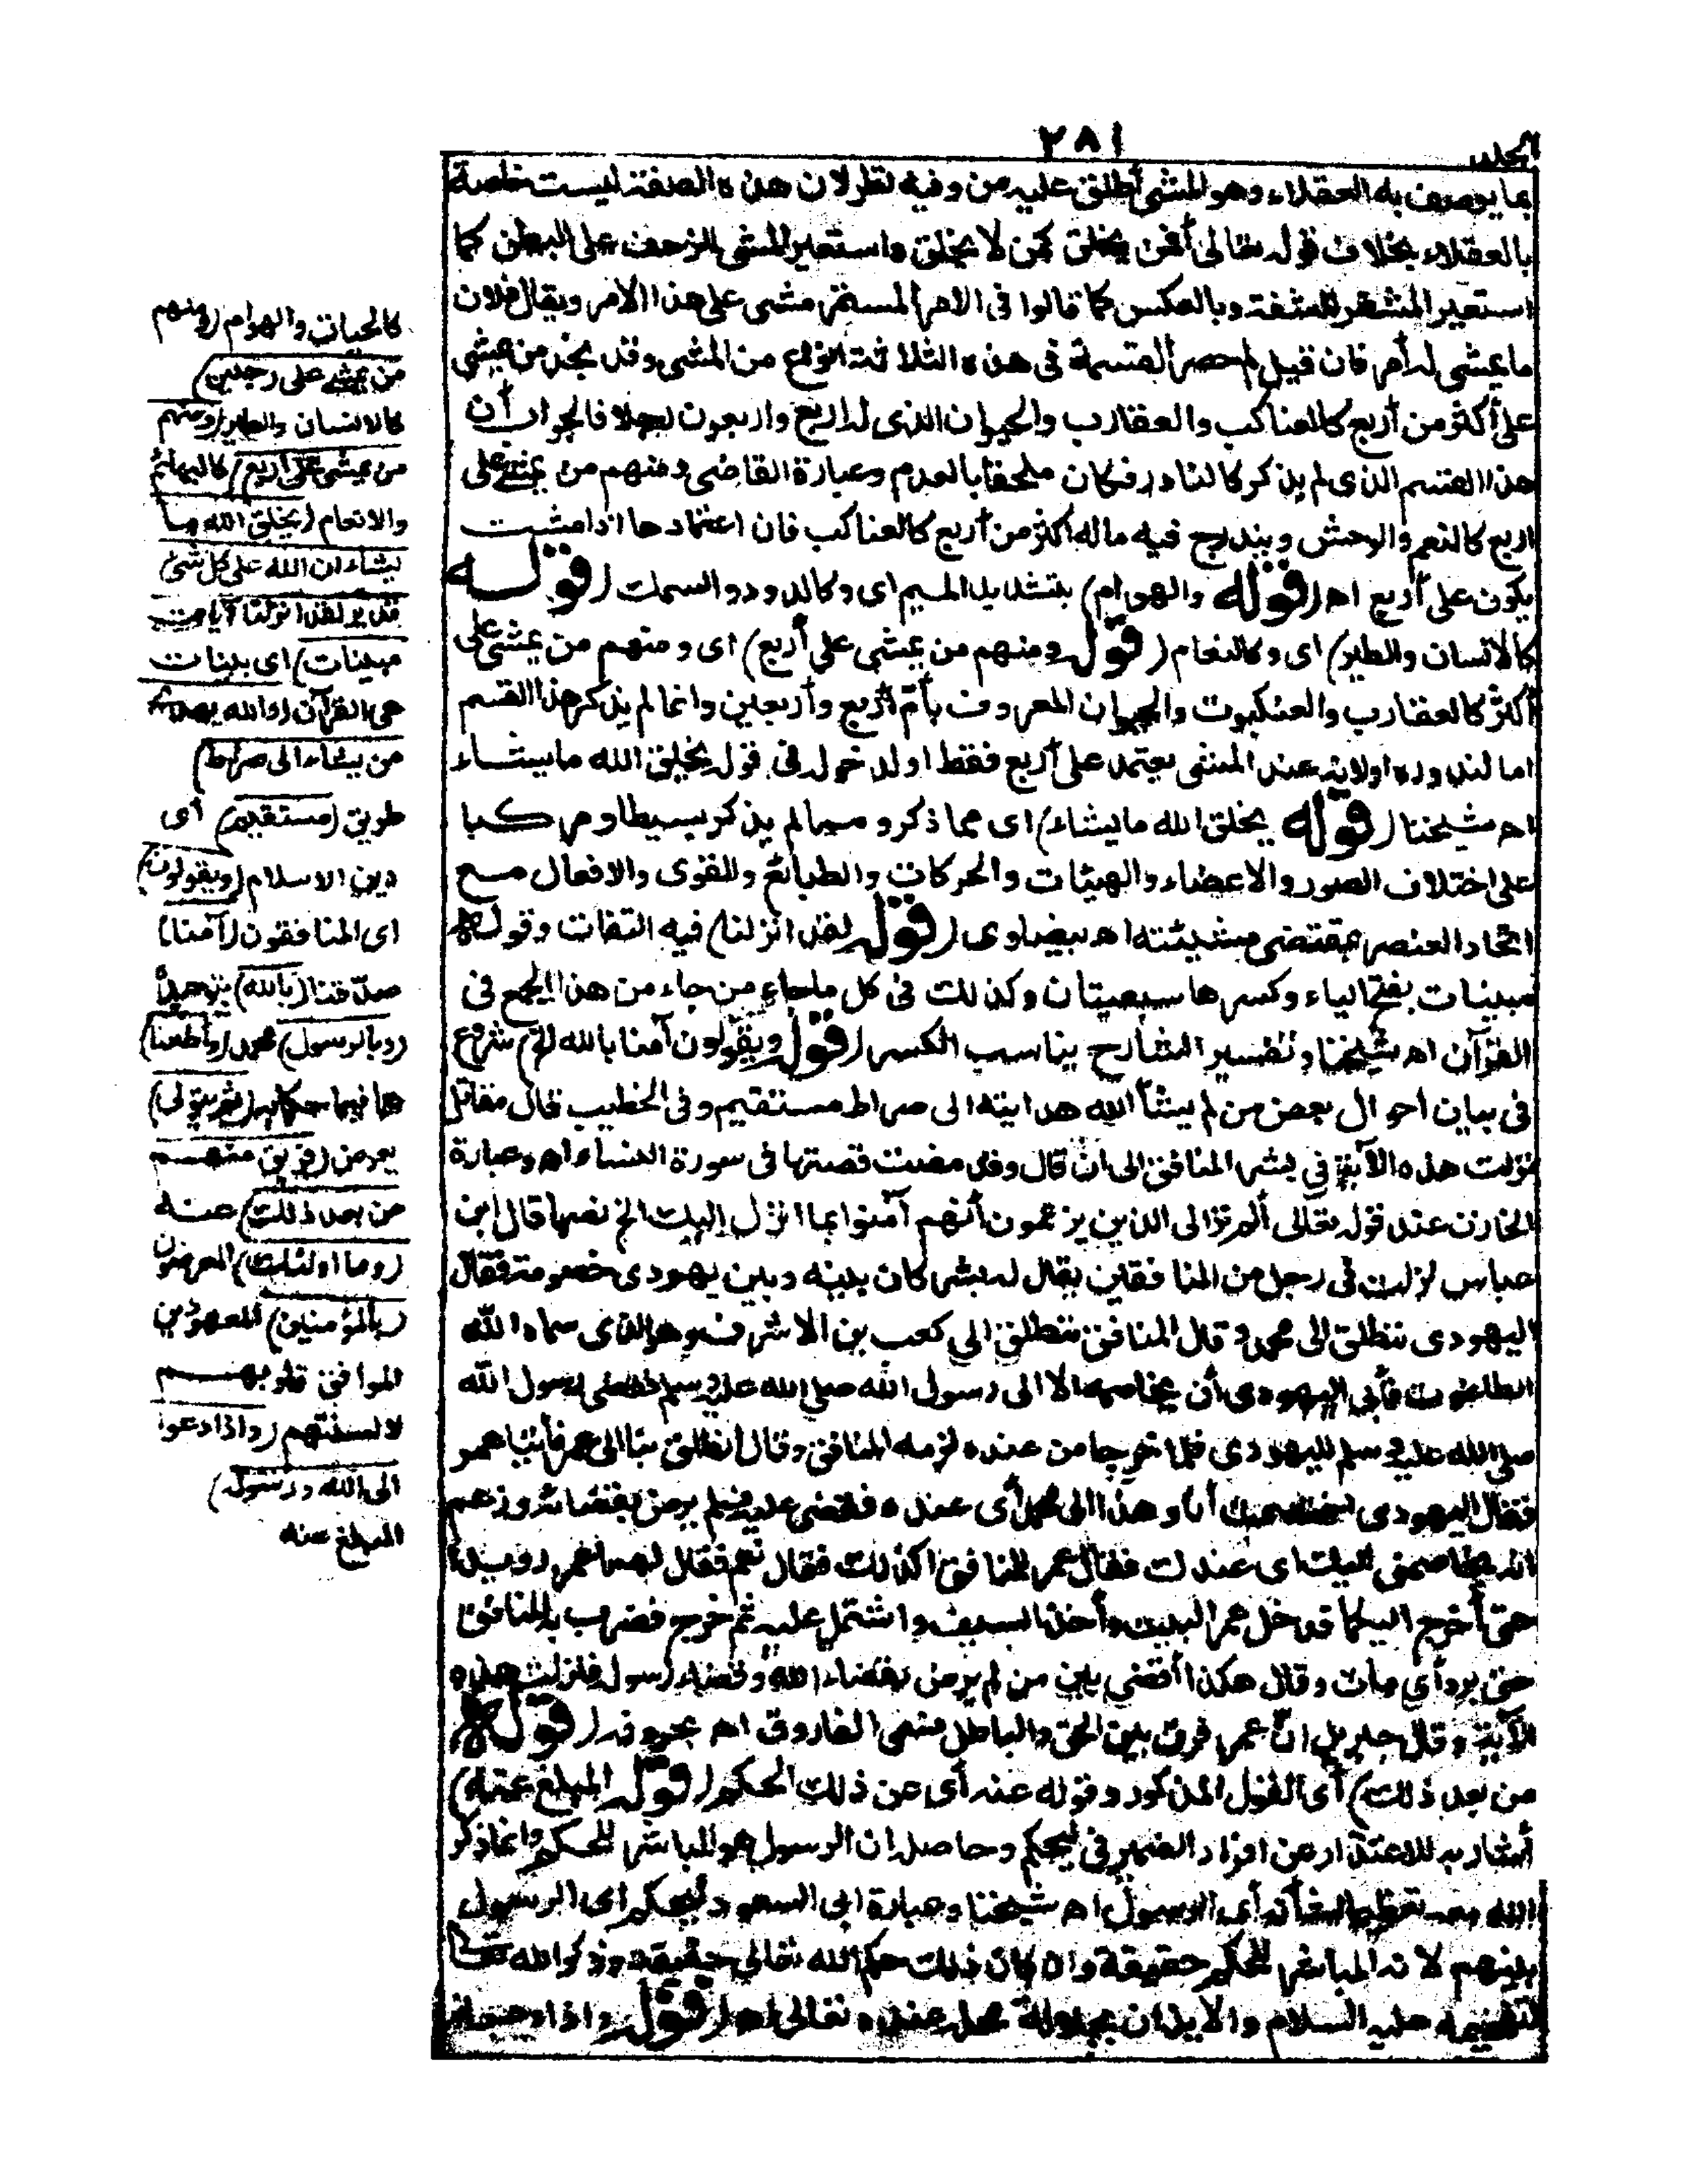 ٢٨١
الجلد
بما يوصف به العقلاء وهو المشي أطلق عليه من وفيه نظر لان هذه الصفة ليست خاصة
بالعقلاء بخلاف قوله تعالى أفمن يخلق كمن لا يخلق واستعير المشى للزحف على البطن كما
استعير المشفر للشفة وبالعكس كما قالوا فى الامر المستمر مشى على هذا الامر ويقال فلان
ما يمشى له أمر فان قيل لم حصر القسمة فى هذه الثلاثة انواع من المشى وقد نجد من يمشى
على أكثر من أربع كالعناكب والعقارب والحيوان الذى له اربع واربعون رجلا فالجواب أن
هذا القسم الذى لم يذكر كالنادر فكان ملحقا بالعدم وعبارة القاضى ومنهم من يمشى على
اربع كالنعم والوحش ويندرج فيه ماله اكثر من أربع كالعناكب فان اعتمادها اذا مشت
يكون على أربع اه (قوله والهوام) بتشديد الميم اى وكالدود والسمك (قوله
كالانسان والطير) اى وكالنعام (قوله ومنهم من يمشى على أربع) اى ومنهم من يمشى على
أكثر كالعقارب والعنكبوت والحيوان المعروف بأم أربع وأربعين وانما لم يذكر هذا القسم
اما لندوره اولانه عند المشى يعتمد على أربع فقط اولدخوله فى قوله يخلق الله ما يشاء
اه شيخنا (قوله يخلق الله ما يشاء) اى مما ذكر و مما لم يذكر بسيطا و مركبا
على اختلاف الصور والاعضاء والهيئات والحركات والطبائع والقوى والافعال مع
اتحاد العنصر بمقتضى مشيئته اه بيضاوى (قوله لقد انزلنا) فيه التفات وقوله
مبينات بفتح الياء وكسرها سبعيتان وكذلك فى كل ماجاء من جاء من هذا الجمع فى
القرآن اه شيخنا وتفسير الشارح يناسب الكسر (قوله ويقولون آمنا بالله الخ) شروع
فى بيان احوال بعض من لم يشأ الله هدايته الى صراط مستقيم وفى الخطيب قال مقاتل
نزلت هذه الآية في بشر المنافق الى ان قال وقد مضت قصتها فى سورة النساء اه وعبارة
الخازن عند قوله تعالى ألم تر الى الذين يزعمون أنهم آمنوا بما انزل اليك الخ نصها قال ابن
عباس نزلت فى رجل من المنافقين يقال له بشر كان بينه وبين يهودى خصومة فقال
اليهودى ننطلق الى محمد وقال المنافق ننطلق الى كعب بن الاشرف وهو الذى سماه الله
الطاغوت فأبى اليهودى أن يخاصمه الا الى رسول الله صلى الله عليه وسلم فقضى رسول الله
صلى الله عليه وسلم لليهودى فلما خرجا من عنده لزمه المنافق وقال انطلق بنا الى عمر فأتيا عمر
فقال اليهودى اختصمت أنا وهذا الى محمد أى عنده فقضى عليه فلم يرض بقضائه وزعم
انه يخاصمنى اليك اى عندك فقال عمر للمنافق اكذلك فقال نعم فقال لهما عمر رويدا
حتى أخرج اليكما فدخل عمر البيت وأخذ السيف واشتمل عليه ثم خرج فضرب به المنافق
حتى برد أي مات وقال هكذا أقضى بين من لم يرض بقضاء الله وقضاء رسوله فنزلت هذه
الآية وقال جبريل انّ عمر فرق بين الحق والباطل فسمى الفاروق اه بحروفه (قوله
من بعد ذلك) أى القول المذكور وقوله عنه أى عن ذلك الحكم (قوله المبلغ عنه)
أشار به للاعتذار عن افراد الضمير فى ليحكم وحاصله ان الرسول هو المباشر للحكم وانما ذكر
الله معه تعظيما لشأنه أى الرسول اه شيخنا وعبارة ابى السعود ليحكم اى الرسول
بينهم لانه المباشر للحكم حقيقة وان كان ذلك حكم الله تعالى حقيقة وذكر الله تعالى
لتفخيمه عليه السلام والايذان بجلالة محله عنده تعالى اه (قوله واذا دعوا
كالحيات والهوام (ومنهم
من يمشى على رجلين)
كالانسان والطير (ومنهم
من يمشى على اربع) كالبهائم
والانعام (يخلق الله ما
يشاء ان الله على كل شئ
قدير لقد انزلنا آيات
مبينات) اى بينات
هى القرآن (والله يهدى
من يشاء الى صراط)
طريق (مستقيم) أى
دين الاسلام (ويقولون)
اى المنافقون (آمنا)
صدقنا (بالله) بتوحيده
(وبالرسول) محمد (وأطعنا)
هما فيما حكما به (ثم يتولى)
يعرض (فريق منهم
من بعد ذلك) عنه
(وما اولئك) المعرضون
(بالمؤمنين) المعهودين
الموافق قلوبهم
لالسنتهم (واذا دعوا
الى الله ورسوله)
المبلغ عنه